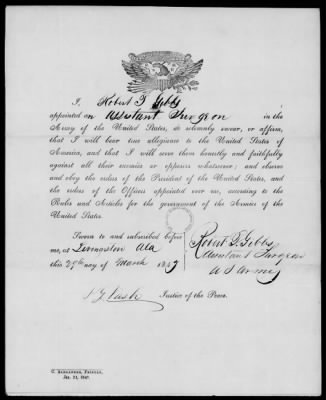 I, Robert T. Gibbs
appointed an Assistant Surgeon in the
Army of the United States, do solemnly swear, or affirm,
that I will bear true allegiance to the United States of
America, and that I will serve them honestly and faithfully
against all their enemies or opposers whatsoever; and observe
and obey the orders of the President of the United States,
and the orders of the Officers appointed over me, according to the
Rules and Articles for the government of the Armies of the
United States.
Sworn to and subscribed before
me, at Livingston Ala
this 29th day of March 1847
Robert T. Gibbs
Assistant Surgeon
U S Army
Justice of the Peace.
C. Alexander, Printer,
Jan. 21, 1847.